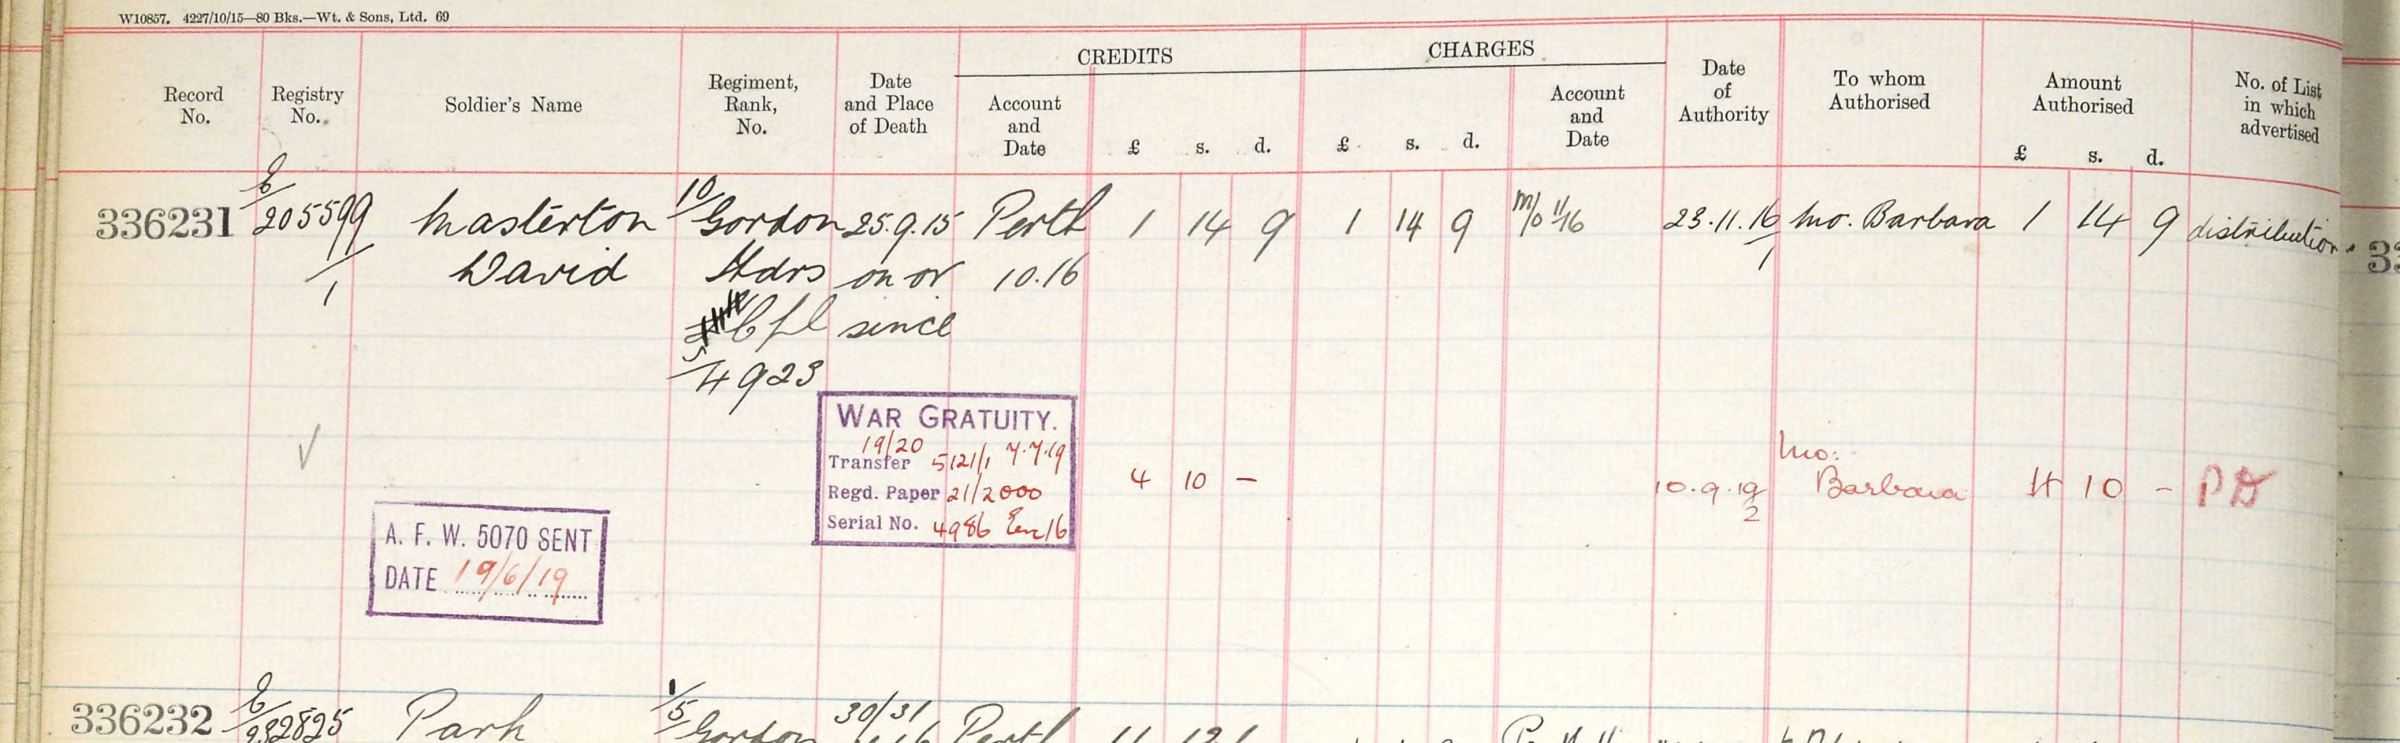 W10857. 4227/10/15—80 Bks.—Wt. & Sons, Ltd. 69
CREDITS CHARGES
Record No. Registry No. Soldier's Name Regiment, Rank, No. Date and Place of Death Account and Date £ s. d. £ s. d. Account and Date Date of Authority To whom Authorised Amount Authorised £ s. d. No. of List in which advertised
336231 E/205599/1 Masterton 10/Gordon 25.9.15 Perth 1 14 9 1 14 9 M/O 11/16 23.11.16/1 Mo. Barbara 1 14 9 distribution.
David Hdrs on or 10.16
Cpl since
S/4923
WAR GRATUITY.
19/20
Transfer 5121/1 7.7.19
Regd. Paper 21/2000
Serial No. 4986 Enc 16
4 10 — 10.9.19/2 Mo: Barbara 4 10 –
A. F. W. 5070 SENT
DATE 19/6/19
336232 E/932825 Park 1/5 Gordon 30/31 Perth